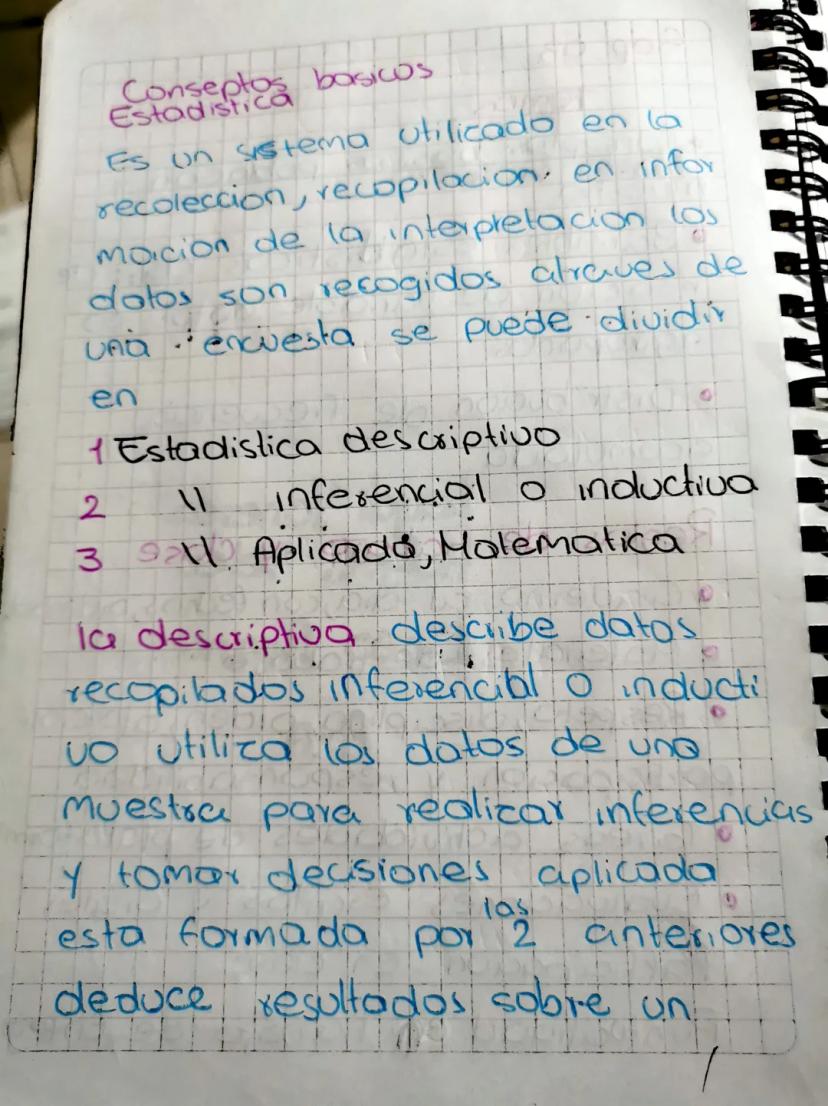 Conseptos basicos
Estadistica
Es un sistema utilicado en la
recoleccion, recopilacion. en infor
macion de la interpretacion los
datos son recogidos atraves de
una encuesta se puede dividir
en
1 Estadistica descriptivo
2 \\ inferencial o inductiva
3 \\ Aplicada, Matematica
la descriptiva describe datos
recopilados inferencial o inducti
vo utiliza los datos de una
muestra para realizar inferencias
y tomar decisiones aplicada
esta formada por las 2 anteriores
deduce resultados sobre un